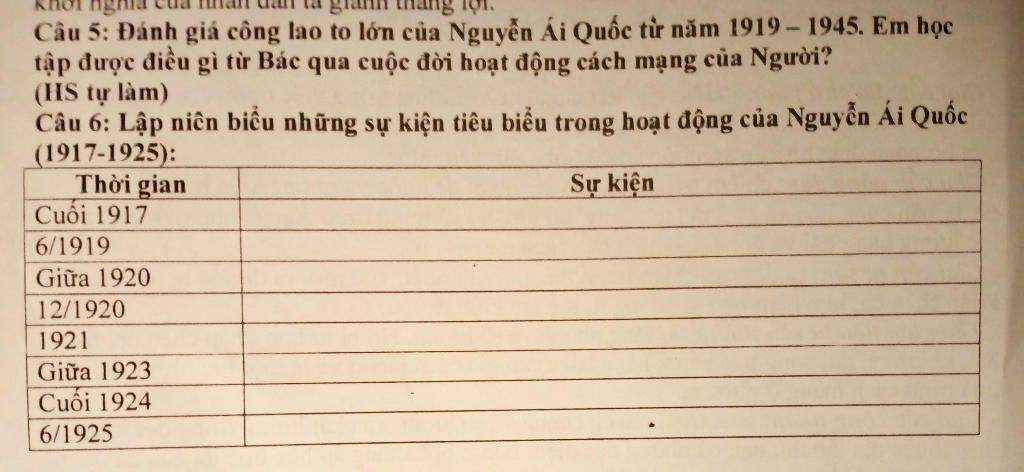 khởi nghĩa của nhân dân ta giành thắng lợi.
Câu 5: Đánh giá công lao to lớn của Nguyễn Ái Quốc từ năm 1919 – 1945. Em học
tập được điều gì từ Bác qua cuộc đời hoạt động cách mạng của Người?
(HS tự làm)
Câu 6: Lập niên biểu những sự kiện tiêu biểu trong hoạt động của Nguyễn Ái Quốc
(1917-1925):
Thời gian Sự kiện
Cuối 1917
6/1919
Giữa 1920
12/1920
1921
Giữa 1923
Cuối 1924
6/1925